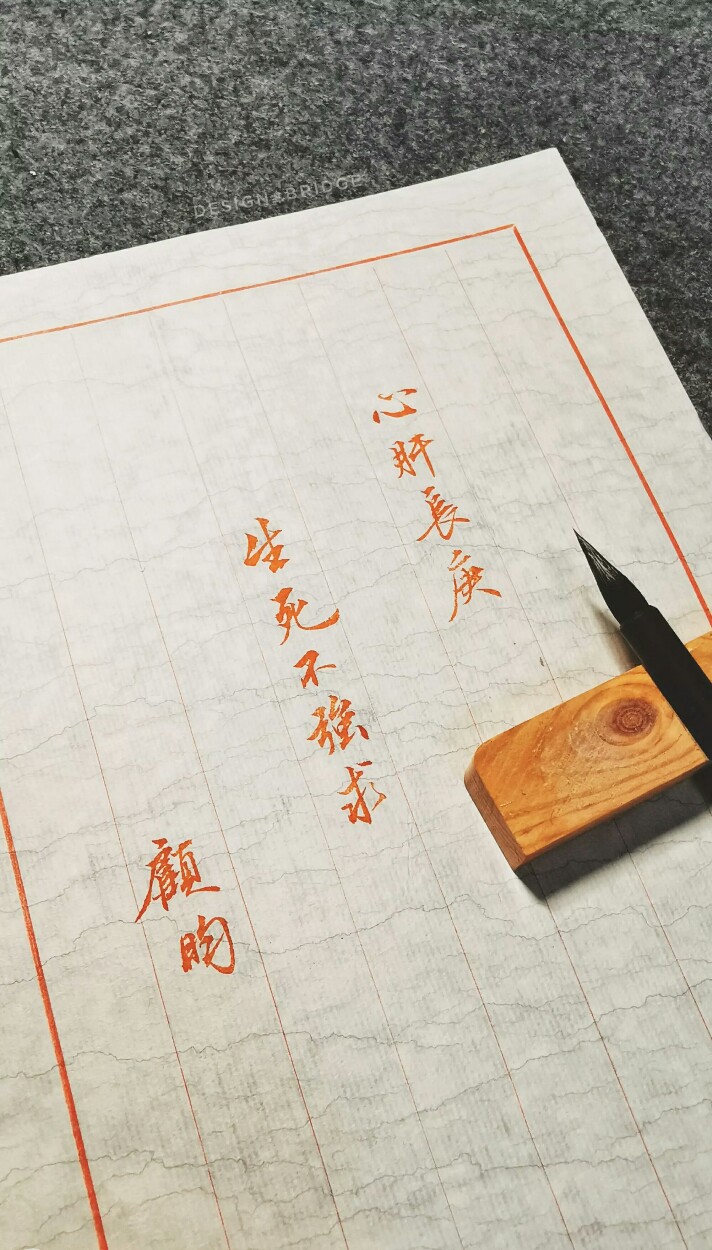 心肝長庚
生死不強求
顧昀
DESIGN×BRIDGE